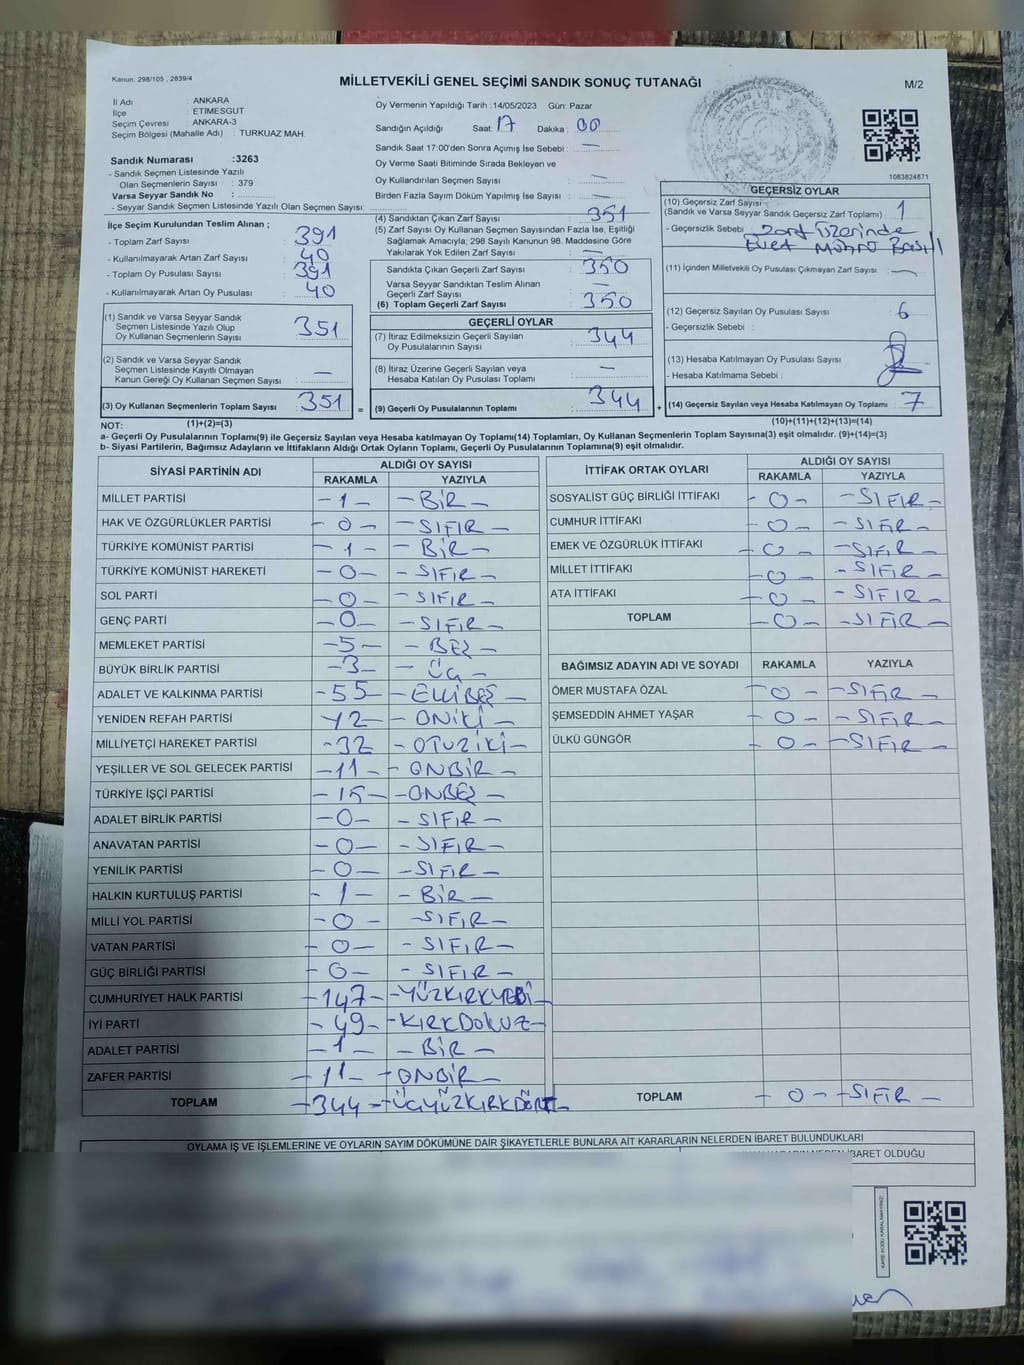 Kanun: 298/105 , 2839/4
MİLLETVEKİLİ GENEL SEÇİMİ SANDIK SONUÇ TUTANAĞI
M/2
İl Adı : ANKARA
İlçe : ETİMESGUT
Seçim Çevresi : ANKARA-3
Seçim Bölgesi (Mahalle Adı) : TURKUAZ MAH.
Sandık Numarası :3263
- Sandık Seçmen Listesinde Yazılı
Olan Seçmenlerin Sayısı : 379
Varsa Seyyar Sandık No :
- Seyyar Sandık Seçmen Listesinde Yazılı Olan Seçmen Sayısı:
Oy Vermenin Yapıldığı Tarih :14/05/2023 Gün: Pazar
Sandığın Açıldığı Saat: 17 Dakika : 00
Sandık Saat 17:00'den Sonra Açımış İse Sebebi : —
Oy Verme Saati Bitiminde Sırada Bekleyen ve
Oy Kullandırılan Seçmen Sayısı : —
Birden Fazla Sayım Döküm Yapılmış İse Sayısı : —
1083824871
İlçe Seçim Kurulundan Teslim Alınan ;
- Toplam Zarf Sayısı : 391
- Kullanılmayarak Artan Zarf Sayısı : 40
- Toplam Oy Pusulası Sayısı : 391
- Kullanılmayarak Artan Oy Pusulası : 40
(1) Sandık ve Varsa Seyyar Sandık
Seçmen Listesinde Yazılı Olup
Oy Kullanan Seçmenlerin Sayısı : 351
(2) Sandık ve Varsa Seyyar Sandık
Seçmen Listesinde Kayıtlı Olmayan
Kanun Gereği Oy Kullanan Seçmen Sayısı : —
(3) Oy Kullanan Seçmenlerin Toplam Sayısı : 351 =
(4) Sandıktan Çıkan Zarf Sayısı : 351
(5) Zarf Sayısı Oy Kullanan Seçmen Sayısından Fazla İse, Eşitliği
Sağlamak Amacıyla; 298 Sayılı Kanunun 98. Maddesine Göre
Yakılarak Yok Edilen Zarf Sayısı : —
Sandıkta Çıkan Geçerli Zarf Sayısı : 350
Varsa Seyyar Sandıktan Teslim Alınan
Geçerli Zarf Sayısı : —
(6) Toplam Geçerli Zarf Sayısı : 350
GEÇERLİ OYLAR
(7) İtiraz Edilmeksizin Geçerli Sayılan
Oy Pusulalarının Sayısı : 344
(8) İtiraz Üzerine Geçerli Sayılan veya
Hesaba Katılan Oy Pusulası Toplamı : —
(9) Geçerli Oy Pusulalarının Toplamı : 344 +
GEÇERSİZ OYLAR
(10) Geçersiz Zarf Sayısı
(Sandık ve Varsa Seyyar Sandık Geçersiz Zarf Toplamı) : 1
- Geçersizlik Sebebi : Zarf Üzerinde
Evet Mührü Basılı
(11) İçinden Milletvekili Oy Pusulası Çıkmayan Zarf Sayısı : —
(12) Geçersiz Sayılan Oy Pusulası Sayısı : 6
- Geçersizlik Sebebi :
(13) Hesaba Katılmayan Oy Pusulası Sayısı :
- Hesaba Katılmama Sebebi :
(14) Geçersiz Sayılan veya Hesaba Katılmayan Oy Toplamı : 7
NOT: (1)+(2)=(3) (10)+(11)+(12)+(13)=(14)
a- Geçerli Oy Pusulalarının Toplamı(9) ile Geçersiz Sayılan veya Hesaba katılmayan Oy Toplamı(14) Toplamları, Oy Kullanan Seçmenlerin Toplam Sayısına(3) eşit olmalıdır. (9)+(14)=(3)
b- Siyasi Partilerin, Bağımsız Adayların ve İttifakların Aldığı Ortak Oyların Toplamı, Geçerli Oy Pusulalarının Toplamına(9) eşit olmalıdır.
SİYASİ PARTİNİN ADI ALDIĞI OY SAYISI
RAKAMLA YAZIYLA
MİLLET PARTİSİ - 1 - - BİR -
HAK VE ÖZGÜRLÜKLER PARTİSİ - 0 - - SIFIR -
TÜRKİYE KOMÜNİST PARTİSİ - 1 - - BİR -
TÜRKİYE KOMÜNİST HAREKETİ - 0 - - SIFIR -
SOL PARTİ - 0 - - SIFIR -
GENÇ PARTİ - 0 - - SIFIR -
MEMLEKET PARTİSİ - 5 - - BEŞ -
BÜYÜK BİRLİK PARTİSİ - 3 - - ÜÇ -
ADALET VE KALKINMA PARTİSİ - 55 - ELLİBEŞ -
YENİDEN REFAH PARTİSİ - 12 - ONİKİ -
MİLLİYETÇİ HAREKET PARTİSİ - 32 - OTUZİKİ -
YEŞİLLER VE SOL GELECEK PARTİSİ - 11 - - ONBİR -
TÜRKİYE İŞÇİ PARTİSİ - 15 - - ONBEŞ -
ADALET BİRLİK PARTİSİ - 0 - - SIFIR -
ANAVATAN PARTİSİ - 0 - - SIFIR -
YENİLİK PARTİSİ - 0 - - SIFIR -
HALKIN KURTULUŞ PARTİSİ - 1 - - BİR -
MİLLİ YOL PARTİSİ - 0 - - SIFIR -
VATAN PARTİSİ - 0 - - SIFIR -
GÜÇ BİRLİĞİ PARTİSİ - 0 - - SIFIR -
CUMHURİYET HALK PARTİSİ - 147 - - YÜZKIRKYEDİ -
İYİ PARTİ - 49 - - KIRKDOKUZ -
ADALET PARTİSİ - 1 - - BİR -
ZAFER PARTİSİ - 11 - - ONBİR -
TOPLAM - 344 - ÜÇYÜZKIRKDÖRT -
İTTİFAK ORTAK OYLARI ALDIĞI OY SAYISI
RAKAMLA YAZIYLA
SOSYALİST GÜÇ BİRLİĞİ İTTİFAKI - 0 - - SIFIR -
CUMHUR İTTİFAKI - 0 - - SIFIR -
EMEK VE ÖZGÜRLÜK İTTİFAKI - 0 - - SIFIR -
MİLLET İTTİFAKI - 0 - - SIFIR -
ATA İTTİFAKI - 0 - - SIFIR -
TOPLAM - 0 - - SIFIR -
BAĞIMSIZ ADAYIN ADI VE SOYADI RAKAMLA YAZIYLA
ÖMER MUSTAFA ÖZAL - 0 - - SIFIR -
ŞEMSEDDİN AHMET YAŞAR - 0 - - SIFIR -
ÜLKÜ GÜNGÖR - 0 - - SIFIR -
TOPLAM - 0 - - SIFIR -
OYLAMA İŞ VE İŞLEMLERİNE VE OYLARIN SAYIM DÖKÜMÜNE DAİR ŞİKAYETLERLE BUNLARA AİT KARARLARIN NELERDEN İBARET BULUNDUKLARI
İBARET OLDUĞU